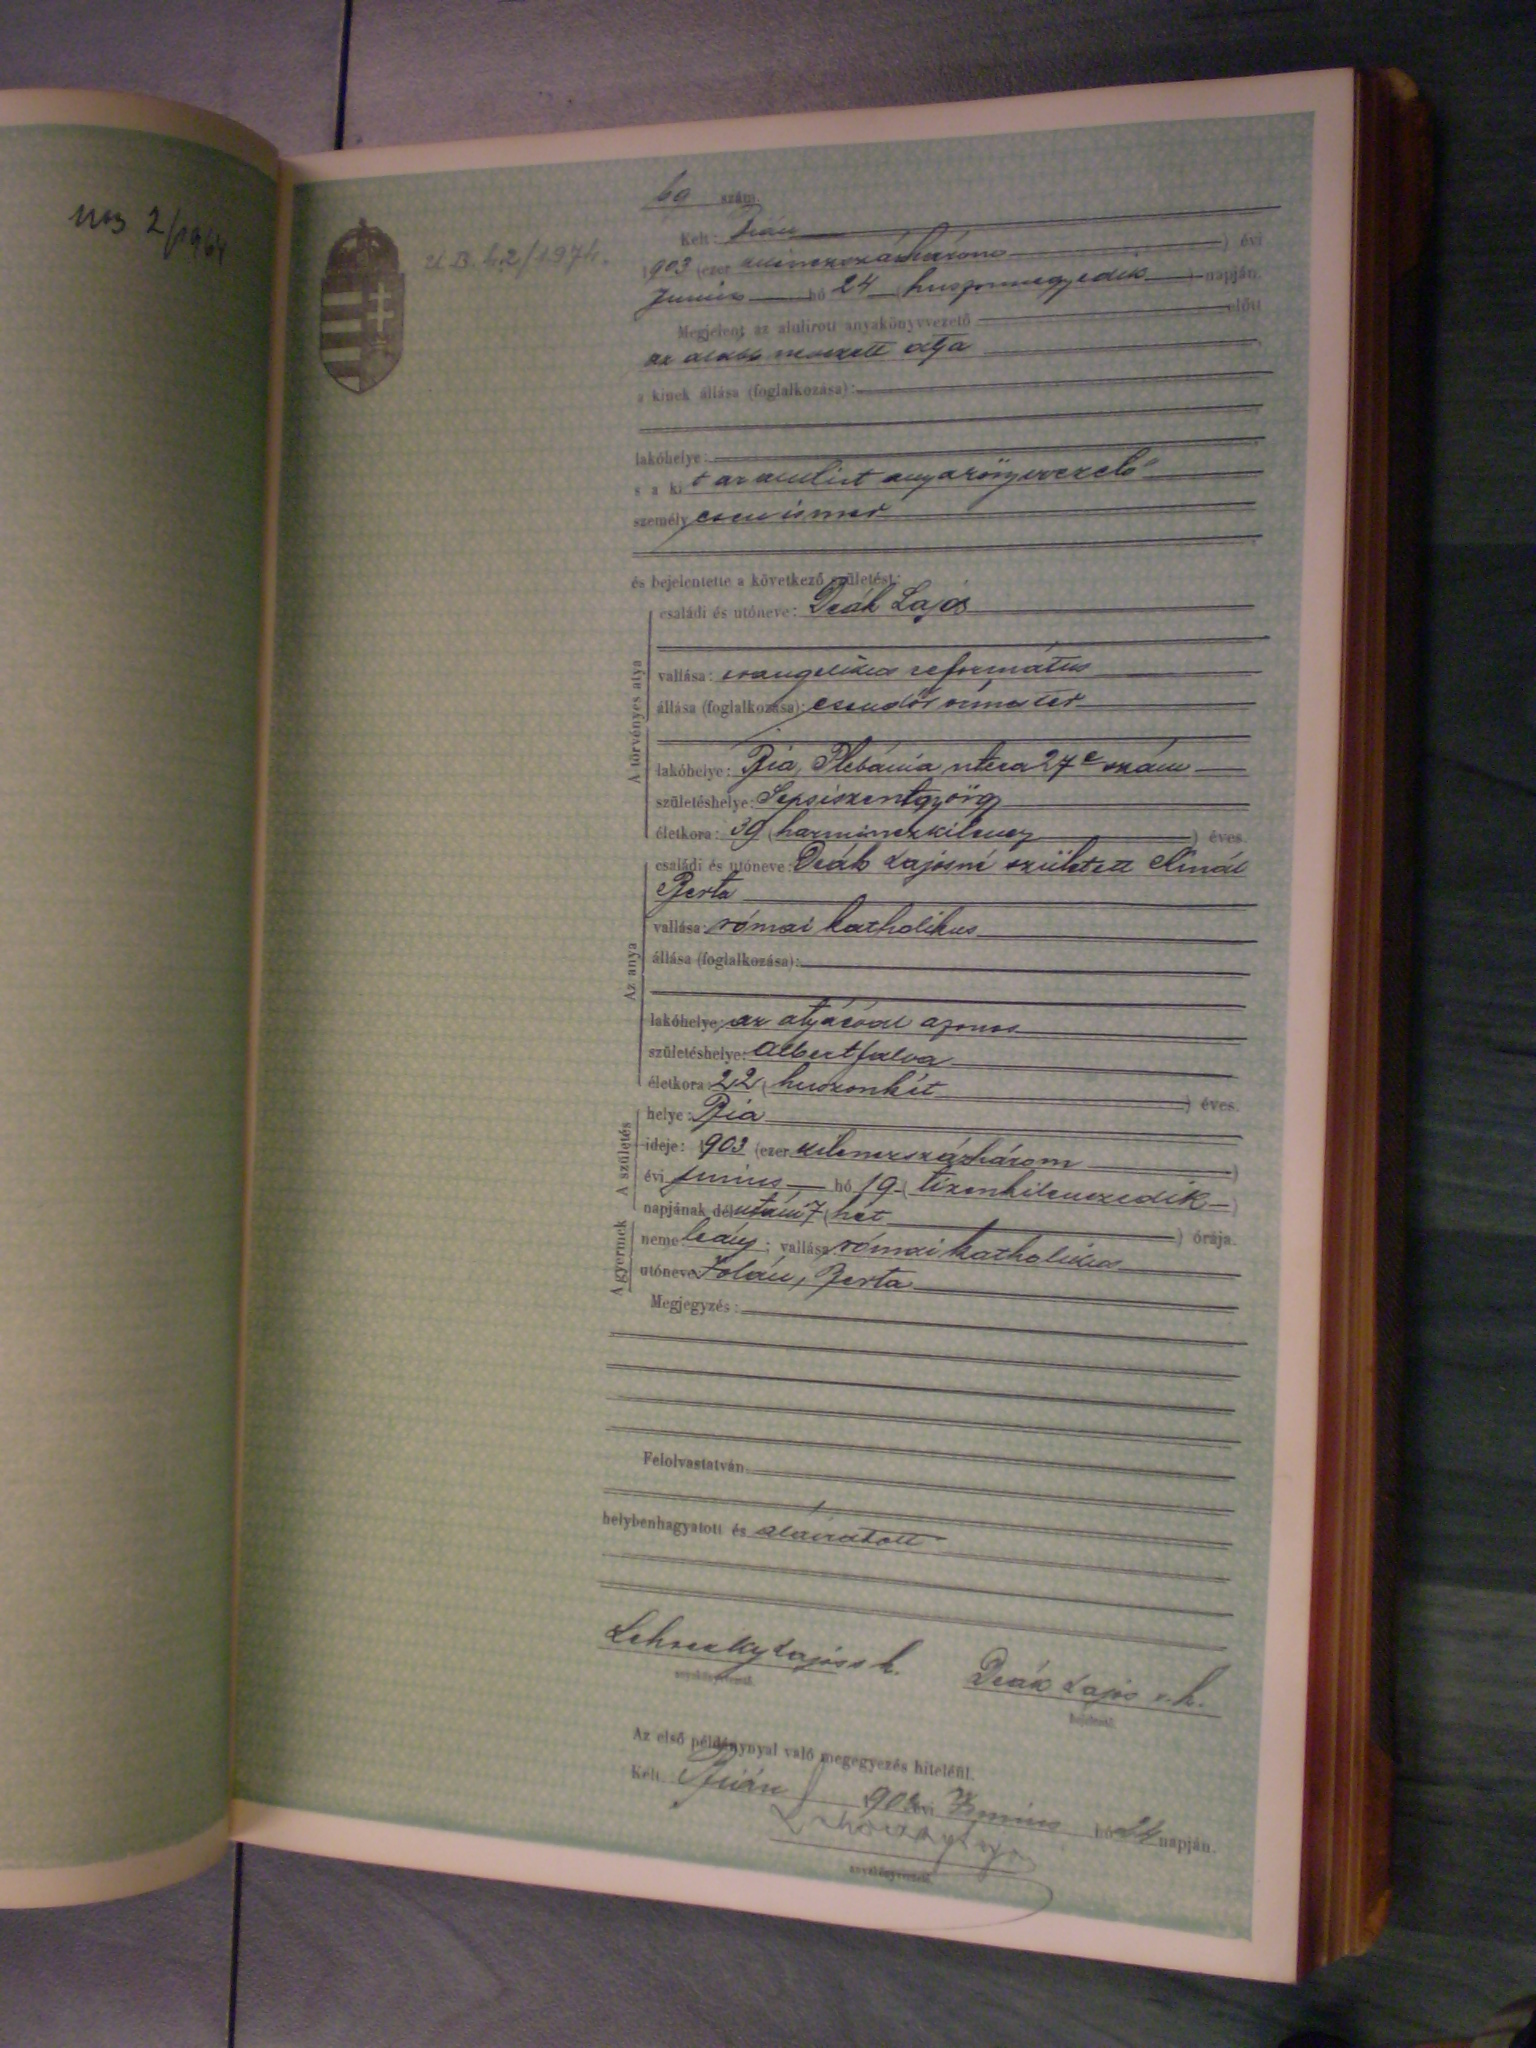 2/1964
2/1974.
69 szám.
Kelt: Bián
1903 (ezer kilenczszázhárom ) évi
Junius hó 24 (huszonnegyedik ) napján.
Megjelent az alulírott anyakönyvvezető előtt
az alább nevezett atya
a kinek állása (foglalkozása):
lakóhelye:
s a kit az alulirt anyakönyvvezető
személyesen ismer
és bejelentette a következő születést:
A törvényes atya
családi és utóneve: Deák Lajos
vallása: evangelikus református
állása (foglalkozása): csendőr
lakóhelye: Bia, Plébánia utcza 27e szám
születéshelye: Sepsiszentgyörgy
életkora: 39 (harminczkilencz ) éves
Az anya
családi és utóneve: Deák Lajosné született
Berta
vallása: római katholikus
állása (foglalkozása):
lakóhelye: az atyáéval azonos
születéshelye: Albertfalva
életkora: 22 ( ) éves.
A születés
helye: Bia
ideje: 1903 (ezer kilenczszázhárom )
évi junius hó 19 (tizenkilenczedik )
napjának délután 7 (hét ) órája.
A gyermek
neme: leány; vallása: római katholikus
utóneve: Jolán, Berta
Megjegyzés:
Felolvastatván,
helybenhagyatott és aláiratott
Lajos s. k. Deák Lajos s. k.
anyakönyvvezető. bejelentő.
Az első példánynyal való megegyezés hiteléül.
Kelt Bián 1903 évi Junius hó 24 napján.
anyakönyvvezető.